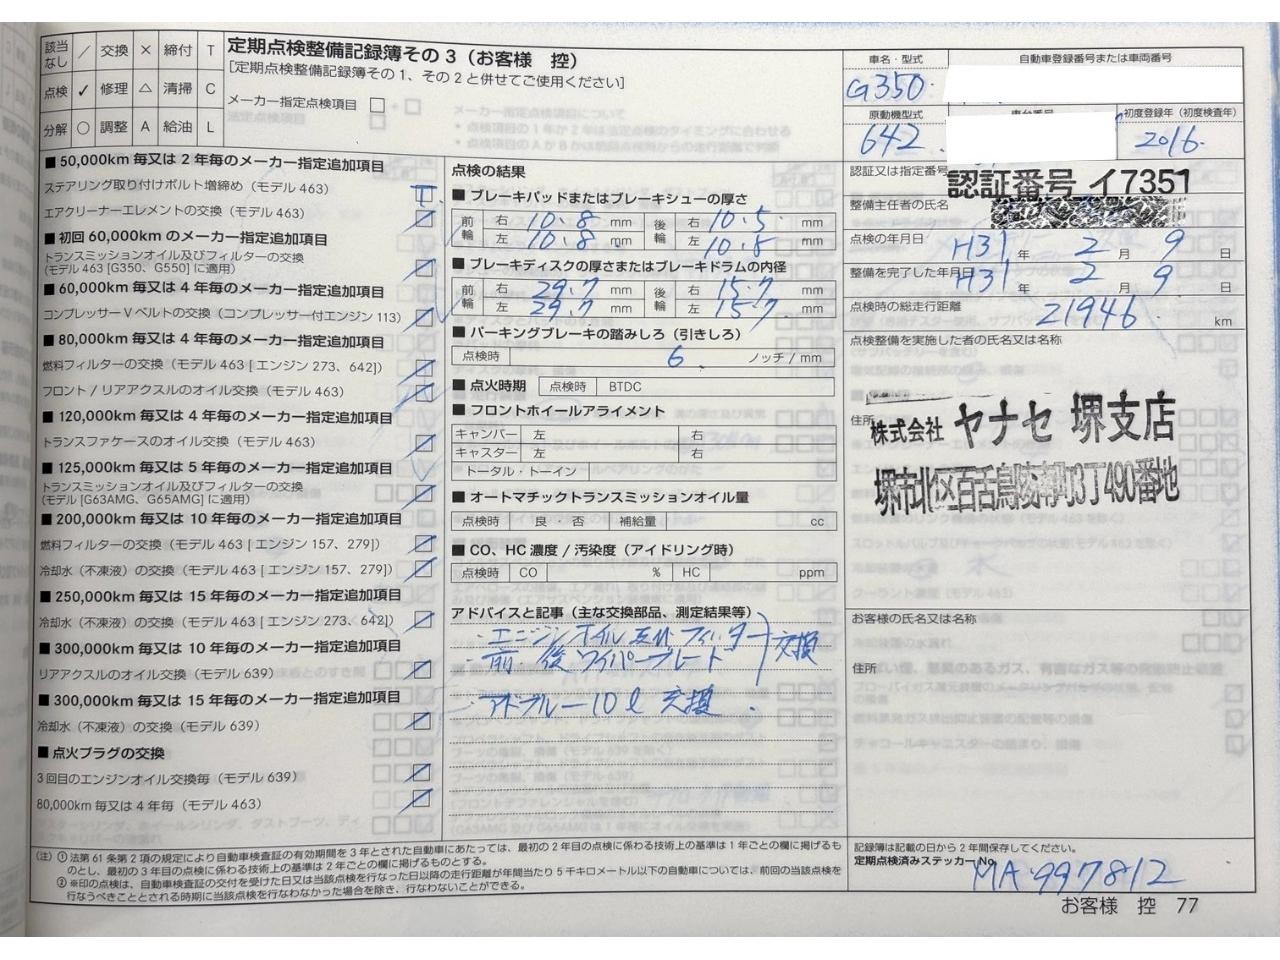 該当なし ／ 交換 × 締付 T
点検 ✓ 修理 △ 清掃 C
分解 ○ 調整 A 給油 L
定期点検整備記録簿その3（お客様 控）
[定期点検整備記録簿その1、その2と併せてご使用ください]
メーカー指定点検項目 □
■ 50,000km 毎又は 2 年毎のメーカー指定追加項目
ステアリング取り付けボルト増締め（モデル 463） T
エアクリーナーエレメントの交換（モデル 463）
■ 初回 60,000km のメーカー指定追加項目
トランスミッションオイル及びフィルターの交換
(モデル 463 [G350、G550] に適用)
■ 60,000km 毎又は 4 年毎のメーカー指定追加項目
コンプレッサー V ベルトの交換（コンプレッサー付エンジン 113）
■ 80,000km 毎又は 4 年毎のメーカー指定追加項目
燃料フィルターの交換（モデル 463 [ エンジン 273、642]）
フロント / リアアクスルのオイル交換（モデル 463）
■ 120,000km 毎又は 4 年毎のメーカー指定追加項目
トランスファケースのオイル交換（モデル 463）
■ 125,000km 毎又は 5 年毎のメーカー指定追加項目
トランスミッションオイル及びフィルターの交換
(モデル [G63AMG、G65AMG] に適用)
■ 200,000km 毎又は 10 年毎のメーカー指定追加項目
燃料フィルターの交換（モデル 463 [ エンジン 157、279]）
冷却水（不凍液）の交換（モデル 463 [ エンジン 157、279]）
■ 250,000km 毎又は 15 年毎のメーカー指定追加項目
冷却水（不凍液）の交換（モデル 463 [ エンジン 273、642]）
■ 300,000km 毎又は 10 年毎のメーカー指定追加項目
リアアクスルのオイル交換（モデル 639）
■ 300,000km 毎又は 15 年毎のメーカー指定追加項目
冷却水（不凍液）の交換（モデル 639）
■ 点火プラグの交換
3 回目のエンジンオイル交換毎（モデル 639）
80,000km 毎又は 4 年毎（モデル 463）
点検の結果
■ ブレーキパッドまたはブレーキシューの厚さ
前輪 右 10.8 mm 後輪 右 10.5 mm
左 10.8 mm 左 10.8 mm
■ ブレーキディスクの厚さまたはブレーキドラムの内径
前輪 右 29.7 mm 後輪 右 15.7 mm
左 29.7 mm 左 15.7 mm
■ パーキングブレーキの踏みしろ（引きしろ）
点検時 6 ノッチ / mm
■ 点火時期 点検時 BTDC
■ フロントホイールアライメント
キャンバー 左 右
キャスター 左 右
トータル・トーイン
■ オートマチックトランスミッションオイル量
点検時 良 ・ 否 補給量 cc
■ CO、HC 濃度 / 汚染度（アイドリング時）
点検時 CO % HC ppm
アドバイスと記事（主な交換部品、測定結果等）
エンジンオイル 及び フィルター
前 後 ワイパーブレード 交換
アドブルー 10ℓ 交換
車名・型式 自動車登録番号または車両番号
G350
原動機型式 初度登録年（初度検査年）
642 2016.
認証又は指定番号 認証番号 イ7351
整備主任者の氏名
点検の年月日 H31 年 2 月 9 日
整備を完了した年月日 H31 年 2 月 9 日
点検時の総走行距離
21946 km
点検整備を実施した者の氏名又は名称
住所
株式会社 ヤナセ 堺支店
堺市北区百舌鳥陵南町3丁490番地
お客様の氏名又は名称
住所
（注）① 法第 61 条第 2 項の規定により自動車検査証の有効期間を 3 年とされた自動車にあたっては、最初の 2 年目の点検に係わる技術上の基準は 1 年ごとの欄に掲げるも
のとし、最初の 3 年目の点検に係わる技術上の基準は 2 年ごとの欄に掲げるものとする。
② ※印の点検は、自動車検査証の交付を受けた日又は当該点検を行なった日以降の走行距離が年間当たり 5 千キロメートル以下の自動車については、前回の当該点検を
行なうべきこととされる時期に当該点検を行なわなかった場合を除き、行なわないことができる。
記録簿は記載の日から 2 年間保存してください。
定期点検済みステッカー No.
MA 997812
お客様 控 77